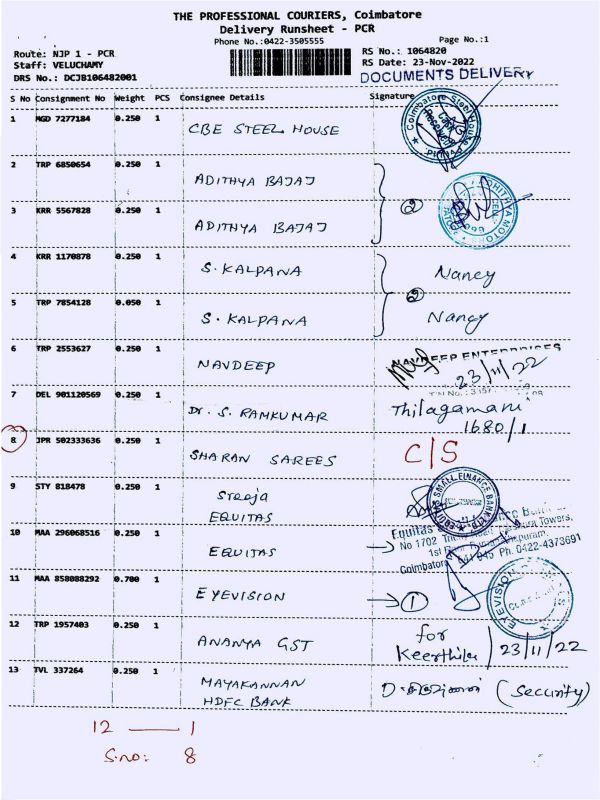 THE PROFESSIONAL COURIERS, Coimbatore
Delivery Runsheet - PCR
Phone No.:0422-3505555
Page No.:1
Route: NJP 1 - PCR
RS No.: 1064820
Staff: VELUCHAMY
RS Date: 23-Nov-2022
DRS No.: DCJB106482001
DOCUMENTS DELIVERY
S No Consignment No Weight PCS Consignee Details Signature
1 MGD 7277184 0.250 1 CBE STEEL HOUSE
2 TRP 6850654 0.250 1 ADITHYA BAJAJ
3 KRR 5567828 0.250 1 ADITHYA BAJAJ
2
4 KRR 1170878 0.250 1 S. KALPANA Nancy
5 TRP 7854128 0.050 1 S. KALPANA Nancy
2
6 TRP 2553627 0.250 1 NAVDEEP
NAVDEEP ENTERPRISES
23/11/22
7 DEL 901120569 0.250 1 Dr. S. RAMKUMAR Thilagamani
1680/1
8 JPR 502333636 0.250 1 SHARAN SAREES C/S
9 STY 818478 0.250 1 Sreeja
EQUITAS
10 MAA 296068516 0.250 1 EQUITAS
Coimbatore 641 045 Ph. 0422-4373691
11 MAA 858088292 0.700 1 EYEVISION 1
EYEVISION
12 TRP 1957403 0.250 1 ANANYA GST for
23/11/22
13 TVL 337264 0.250 1 MAYAKANNAN
HDFC BANK
(Security)
12 — 1
S.no: 8